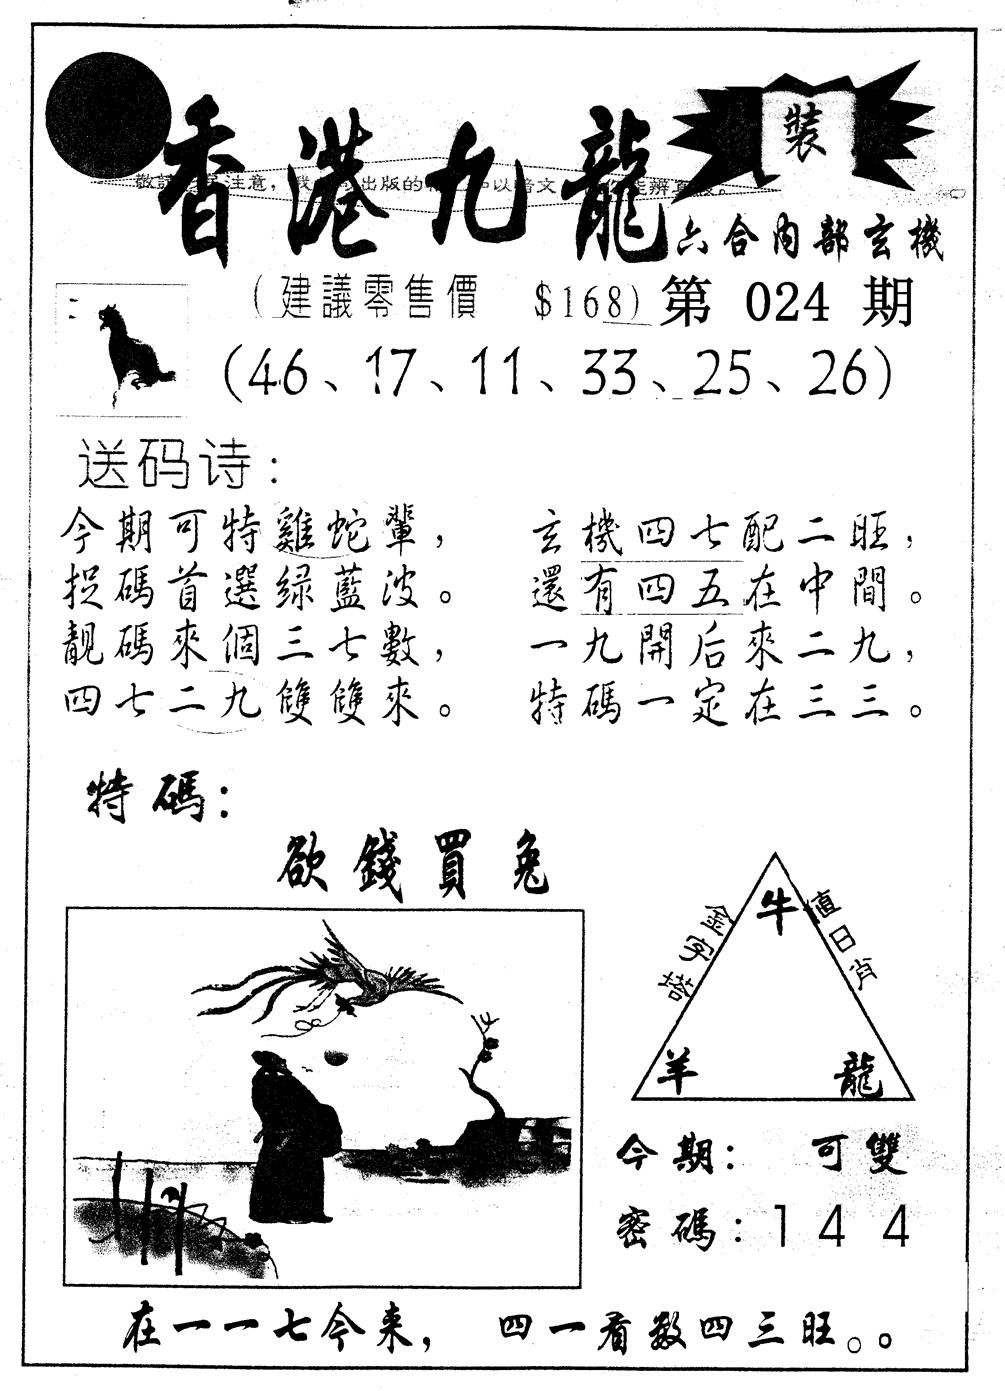 香港九龍
裝
敬 注意， 出版的 以暗文 能辨真
六合内部玄機
(建議零售價 $168) 第 024 期
(46、17、11、33、25、26)
送码诗：
今期可特雞蛇輩，
捉碼首選绿藍波。
靚碼來個三七數，
四七二九雙雙來。
玄機四七配二旺，
還有四五在中間。
一九開后來二九，
特碼一定在三三。
特碼：
欲錢買兔
金字塔
牛
值日肖
羊
龍
今期： 可雙
密碼：144
在一一七今来， 四一看数四三旺。。